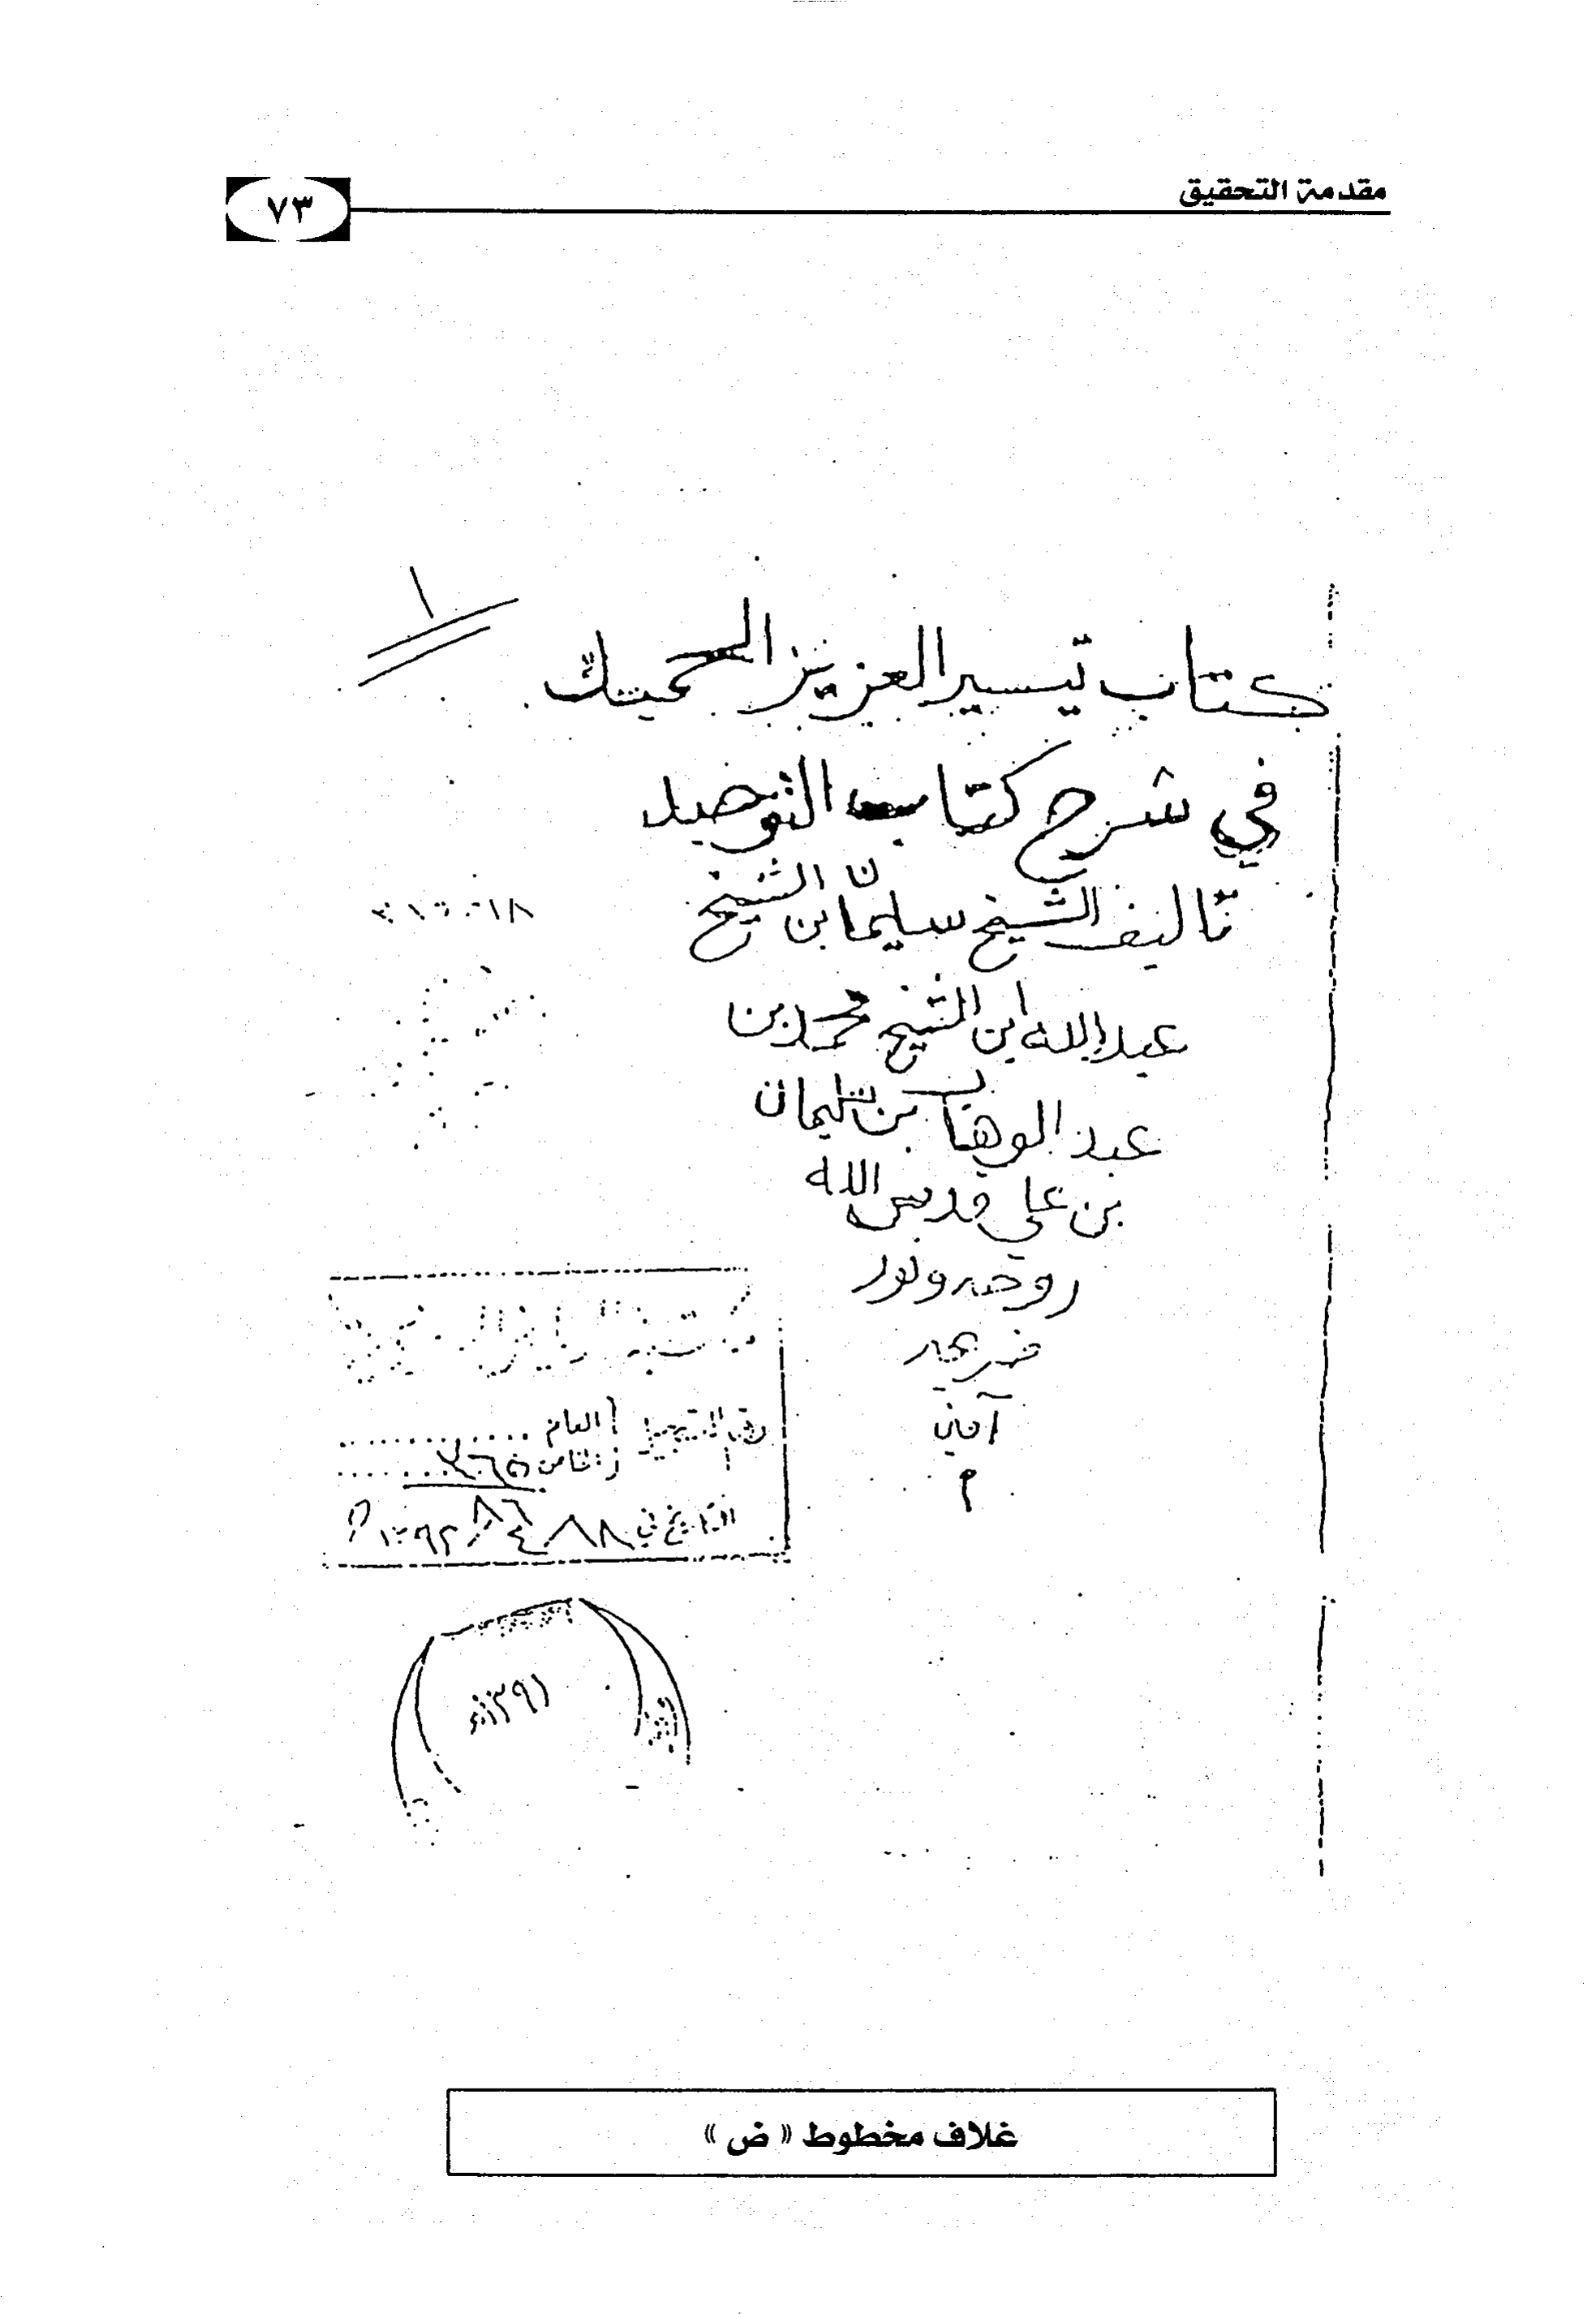 مقدمة التحقيق
٧٣
١
كتاب تيسير العزيز الحميد
في شرح كتاب التوحيد
تاليف الشيخ سليمان ابن الشيخ
عبدالله ابن الشيخ محمد بن
عبد الوهاب بن سليمان
بن علي قدس الله
روحه ونور
ضريحه
آمين
م
رقم التسجيل العام
خاص ٣٦٥
التاريخ في
١٣٩١
غلاف مخطوط « ض »